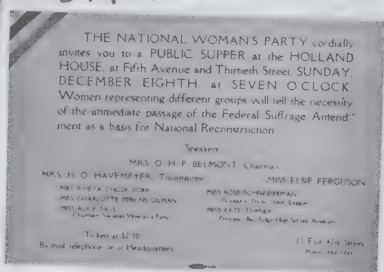 THE NATIONAL WOMAN'S PARTY cordially
invites you to a PUBLIC SUPPER at the HOLLAND
HOUSE, at Fifth Avenue and Thirtieth Street, SUNDAY,
DECEMBER EIGHTH, at SEVEN O'CLOCK.
Women representing different groups will tell the necessity
of the immediate passage of the Federal Suffrage Amend-
ment as a basis for National Reconstruction
Speakers
MRS. O. H. P. BELMONT, Chairman
MRS. H. O. HAVEMEYER, Toastmaster
MISS ELSIE FERGUSON
MRS. RHETA CHILDE DORR
MISS ROSE SCHNEIDERMAN
MRS. CHARLOTTE PERKINS GILMAN
Women's Trade Union League
MISS ALICE PAUL
MISS KATE TURNER
Chairman National Woman's Party
High School
Tickets at $2.
By mail, telephone or at Headquarters
East 41st Street